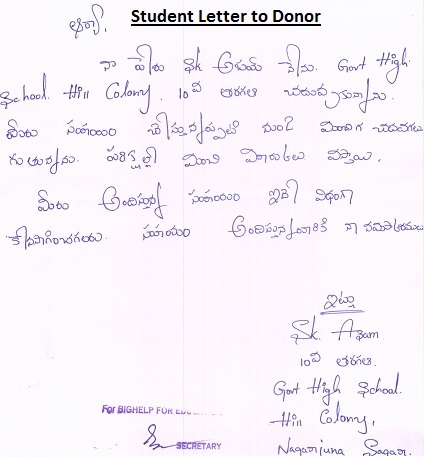 Student Letter to Donor
ఆర్యా,
నా పేరు Sk అజామ్ నేను. Govt High
School. Hill Colony. 10వ తరగతి చదువుకున్నాను.
మీరు సహాయం చేస్తున్నప్పటి నుండి మంచిగ చదవగలు
గుతున్నాను. పరీక్షల్లో మంచి మార్కులు వస్తాయి.
మీరు అందిస్తున్న సహాయం ఇదే విధంగా
సహాయం అందిస్తున్నవారికి నా నమస్కారములు
ఇట్లు
Sk. Azam
10వ తరగతి.
Govt High School.
Hill Colony,
Nagarjuna Sagar.
For BIGHELP FOR
SECRETARY